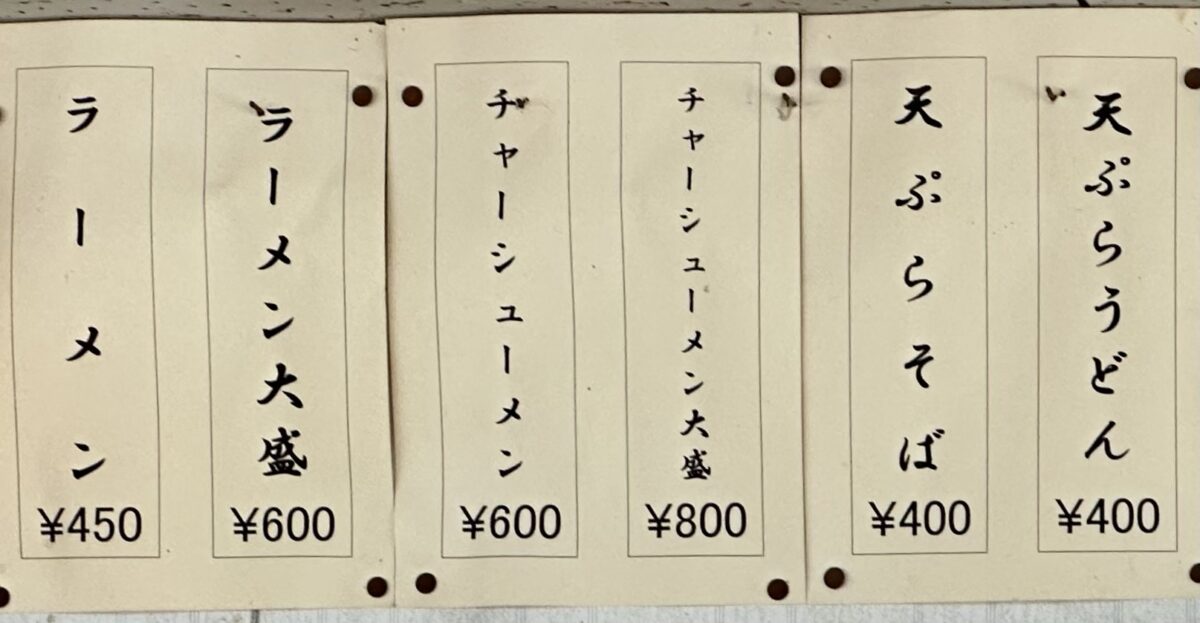 ラーメン
¥450
ラーメン大盛
¥600
チャーシューメン
¥600
チャーシューメン大盛
¥800
天ぷらそば
¥400
天ぷらうどん
¥400